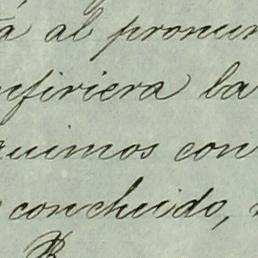 a al pronun
nfiriera la
quimos con
concluido,